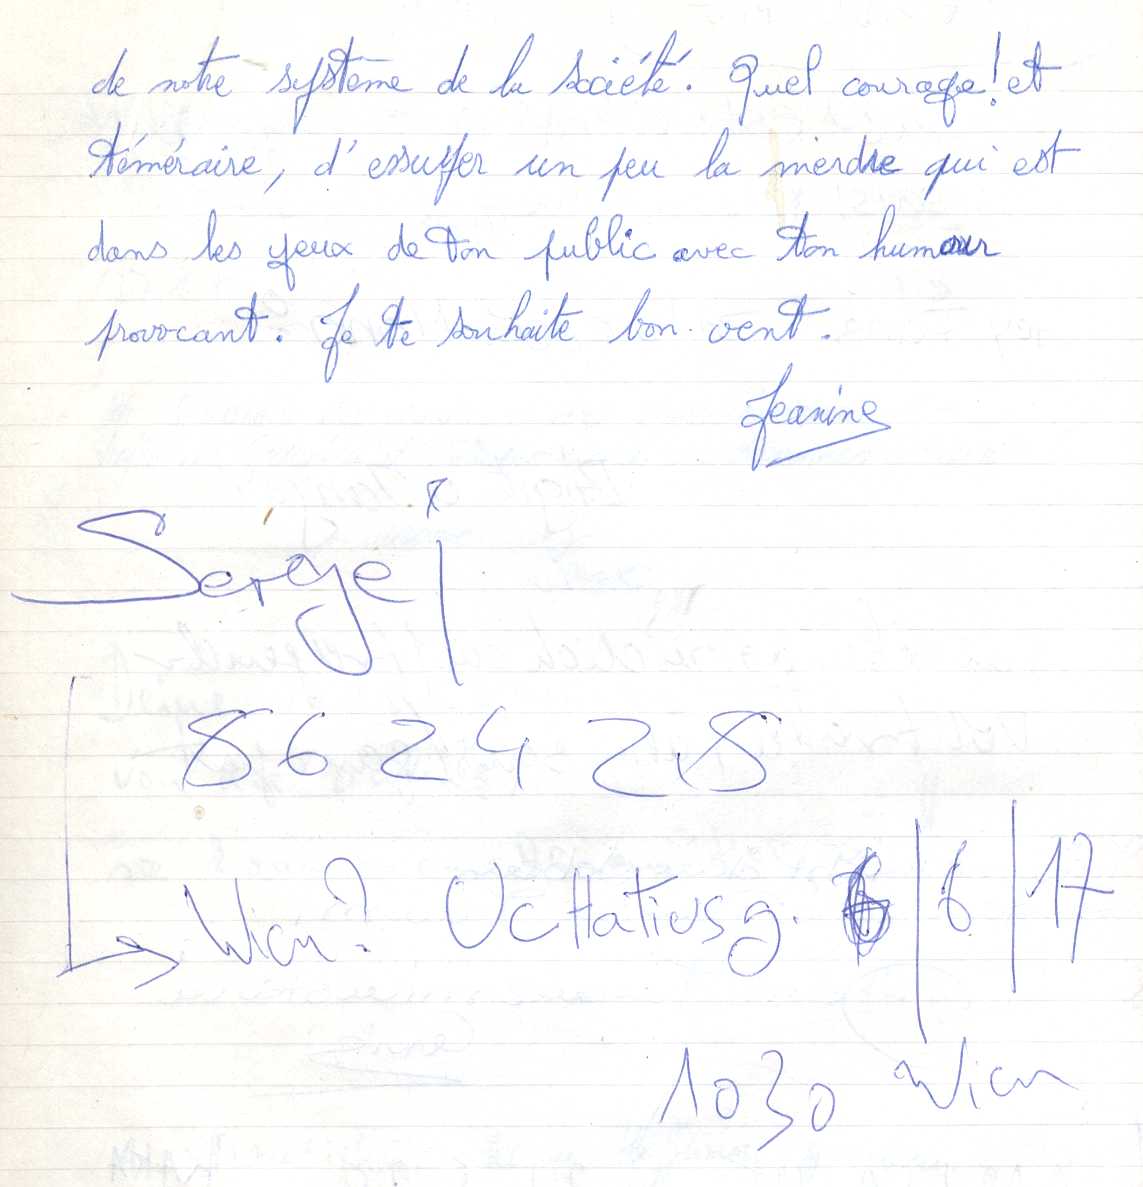 de notre système de la société. Quel courage! et
téméraire, d'essuyer un peu la merdre qui est
dans les yeux de ton public avec ton humour
provocant. Je te souhaite bon vent.
Jeanine
Sergej
862428
Wien? Uchatiusg. 6/6/17
1030 Wien